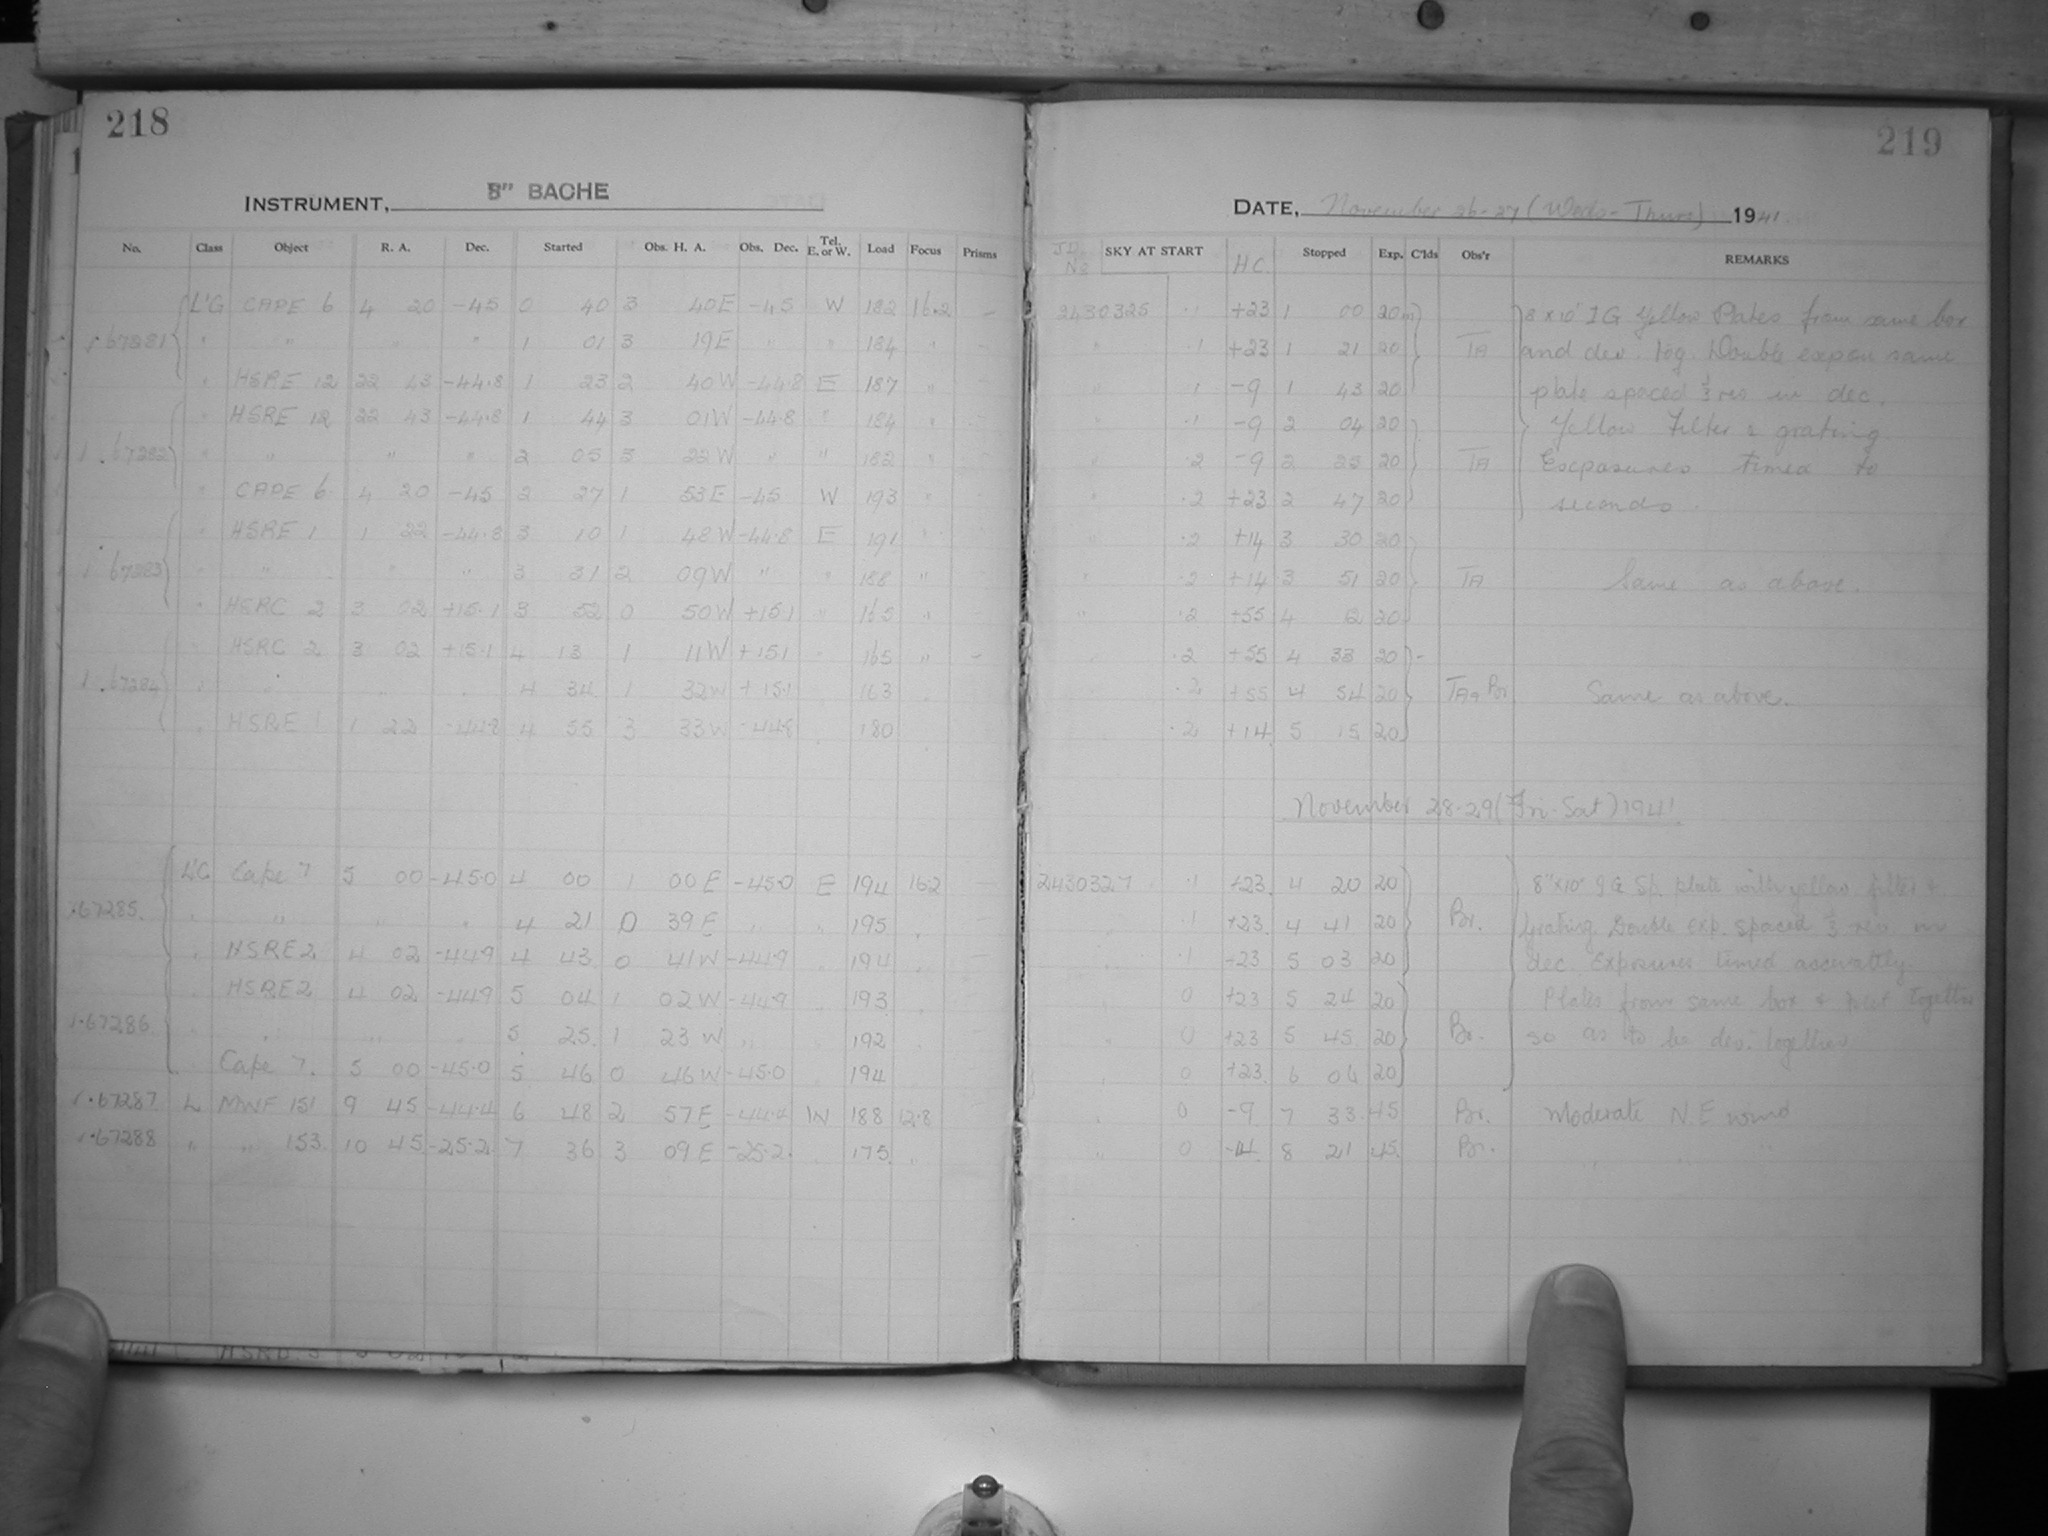 218
INSTRUMENT, 8" BACHE
No. Class Object R. A. Dec. Started Obs. H. A. Obs. Dec. Tel. E. or W. Load Focus Prisms
L'G CAPE 6 4 20 -45 0 40 3 40E -45 W 182 16.2 -
67281 " " " " 1 01 3 19E " " 184 "
" HSRE 12 22 43 -44.8 1 23 2 40W -44.8 E 187 "
" HSRE 12 22 43 -44.8 1 44 3 01W -44.8 " 184 "
67282 " " " " 2 05 3 22W " " 182 "
" CAPE 6 4 20 -45 2 27 1 53E -45 W 193 "
" HSRE 1 1 22 -44.8 3 10 1 48W -44.8 E 191 "
67283 " " " " 3 31 2 09W " " 188 "
" HSRC 2 3 02 +15.1 3 52 0 50W +15.1 " 165 "
" HSRC 2 3 02 +15.1 4 13 1 11W +15.1 " 165 " -
67284 " " " " 4 34 1 32W +15.1 163
" HSRE 1 1 22 -44.8 4 55 3 33W -44.8 180
L'G Cape 7 5 00 -45.0 4 00 1 00E -45.0 E 194 16.2 -
67285 " " " " 4 21 0 39E " " 195 "
" HSRE 2 4 02 -44.9 4 43 0 41W -44.9 " 194 "
HSRE 2 4 02 -44.9 5 04 1 02W -44.9 193
67286 " " " 5 25 1 23W " 192
Cape 7. 5 00 -45.0 5 46 0 46W -45.0 194
67287 L MWF 151 9 45 -44.4 6 48 2 57E -44.4 W 188 12.8
67288 " " 153 10 45 -25.2 7 36 3 09E -25.2 " 175 "
219
DATE, November 26-27 (Weds-Thurs) 1941.
J.D. No SKY AT START H.C. Stopped Exp. C'lds Obs'r REMARKS
2430325 .1 +23 1 00 20m 8 x 10" IG Yellow Plates from same box
" .1 +23 1 21 20 TA and dev. tog. Double expon same
" .1 -9 1 43 20 plate spaced ⅓ rev in dec.
" .1 -9 2 04 20 Yellow Filter & grating
" .2 -9 2 25 20 TA Exposures timed to
" .2 +23 2 47 20 seconds.
" .2 +14 3 30 20
" .2 +14 3 51 20 TA Same as above.
" .2 +55 4 12 20
.2 +55 4 33 20 -
.2 +55 4 54 20 TA & Br Same as above.
.2 +14 5 15 20
November 28-29 (Fri-Sat) 1941
2430327 .1 +23 4 20 20 8"x10" IG Sp. plate with yellow filter &
.1 +23 4 41 20 Br. grating. Double Exp. spaced ⅓ rev. in
.1 +23 5 03 20 dec. Exposures timed accurately.
0 +23 5 24 20 Plates from same box & put together
" 0 +23 5 45 20 Br. so as to be dev. together
0 +23 6 06 20
0 -9 7 33 45 Br. Moderate N.E wind
" 0 -14 8 21 45 Br. " "